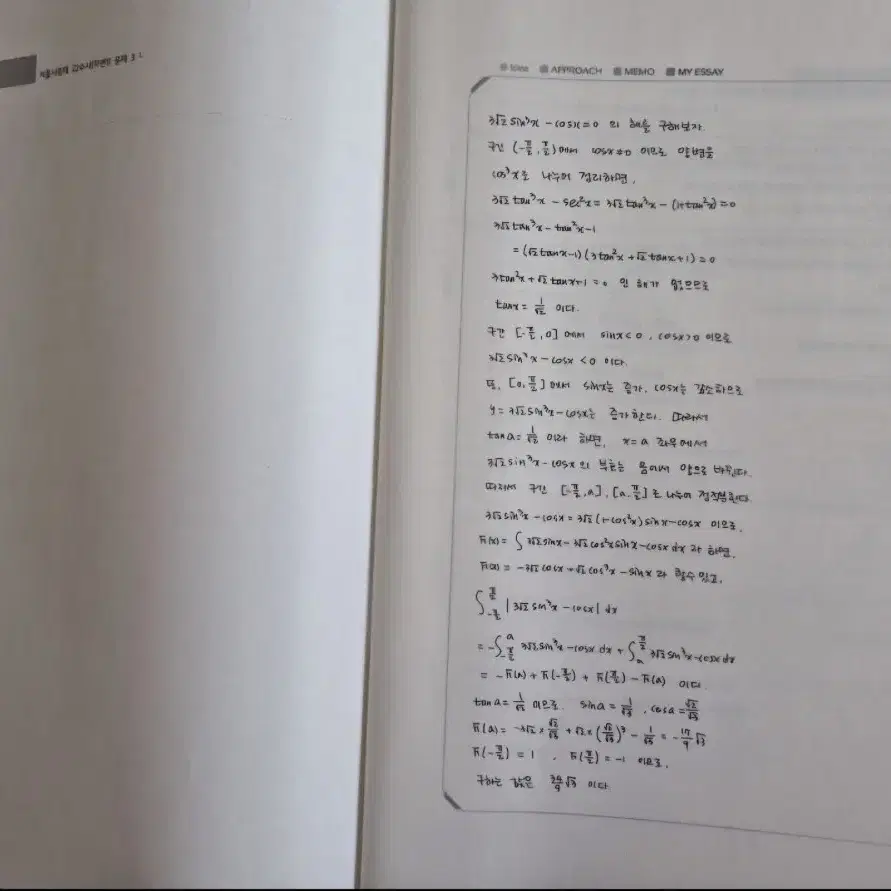 서울시립대 감수 내학변형 문제 3
Idea APPROACH MEMO MY ESSAY
3√2 sin³x - cosx = 0 의 해를 구해보자.
구간 (-π/2, π/2) 에서 cosx≠0 이므로 양변을
cos³x로 나누어 정리하면,
3√2 tan³x - sec²x = 3√2 tan³x - (1+tan²x) = 0
3√2 tan³x - tan²x - 1
= (√2 tanx - 1)(3tan²x + √2 tanx + 1) = 0
3tan²x + √2 tanx + 1 = 0 인 해가 없으므로
tanx = 1/√2 이다.
구간 [-π/2, 0] 에서 sinx<0, cosx>0 이므로
3√2 sin³x - cosx < 0 이다.
또, [0, π/2] 에서 sinx는 증가, cosx는 감소하므로
y = 3√2 sin³x - cosx는 증가한다. 따라서
tan a = 1/√2 이라 하면, x=a 좌우에서
3√2 sin³x - cosx 의 부호는 음에서 양으로 바뀐다.
따라서 구간 [-π/2, a], [a, π/2] 로 나누어 정적분한다.
3√2 sin³x - cosx = 3√2 (1-cos²x) sinx - cosx 이므로,
F(x) = ∫ 3√2 sinx - 3√2 cos²x sinx - cosx dx 라 하면,
F(x) = -3√2 cosx + √2 cos³x - sinx 라 할수 있고,
∫_{-π/2}^{π/2} |3√2 sin³x - cosx| dx
= -∫_{-π/2}^{a} 3√2 sin³x - cosx dx + ∫_{a}^{π/2} 3√2 sin³x - cosx dx
= -F(a) + F(-π/2) + F(π/2) - F(a) 이다.
tan a = 1/√2 이므로, sin a = 1/√3, cos a = √2/√3
F(a) = -3√2 × √2/√3 + √2 × (√2/√3)³ - 1/√3 = -17/9 √3
F(-π/2) = 1, F(π/2) = -1 이므로,
구하는 값은 34/9 √3 이다